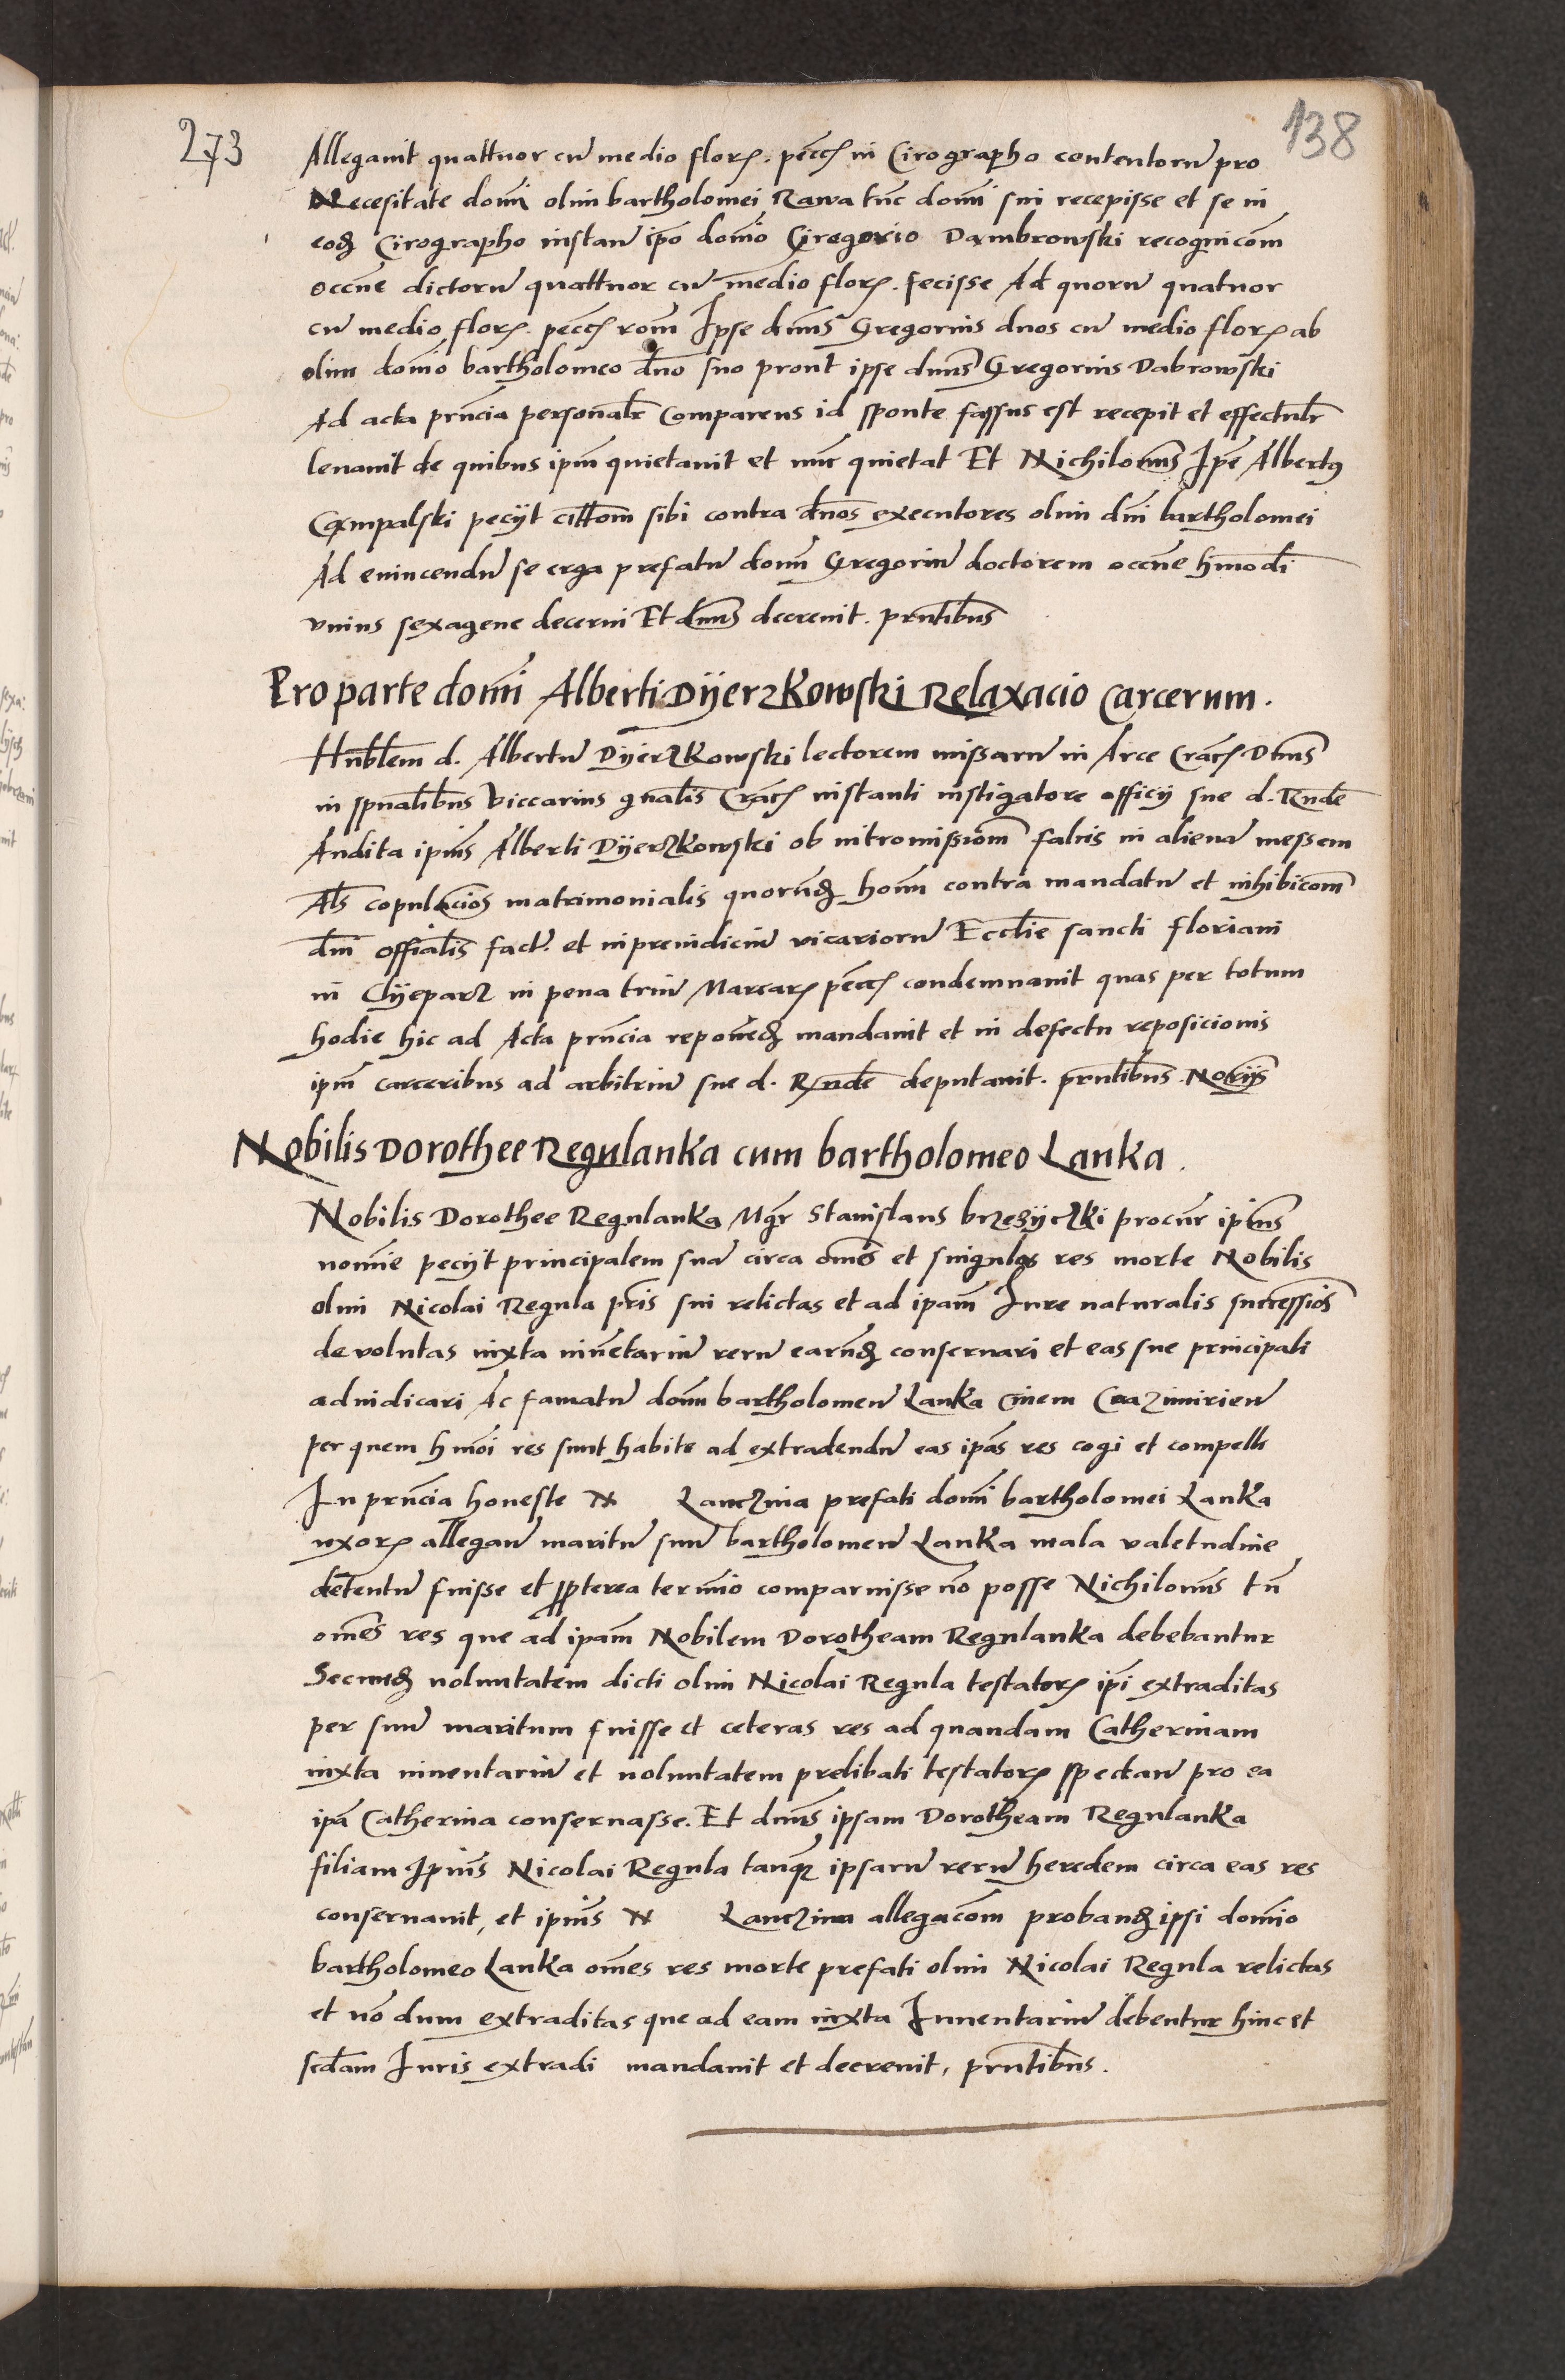 273
138
Allegavit quattuor cu medio flor. pecc in Cirographo contentoru pro
Necesitate domi olim bartholomei Rawa tuc domi sui recepisse et se in
eod Cirographo instan ipo domo Gregorio Dambrowski recognicom
occne dictoru quattuor cu medio flor. fecisse Ad quoru quatuor
cu medio flor. pecc rom Ipse dnus Gregorius duos cu medio flor ab
olim domo bartholomeo dno suo prout ipse dnus Gregorius Dabrowski
Ad acta prncia personalr Comparens id sponte fassus est recepit et effectulr
levavit de quibus ipm quietavit et nuc quietat Et Nichilomus Ipe Albertus
Campalski peciit cittom sibi contra dnos executores olim dni bartholomei
Ad evincendu se erga prefatu domi Gregoriu doctorem occne hmodi
unius sexagene decerni Et dnus decrevit. prntibus
Pro parte domi Alberti Dyerzkowski Relaxacio Carcerum.
Hnblem d. Albertu Dyerzkowski lectorem missaru in Arce Crac. Dnus
in spualibus Viccarius gnalis Crac instanti instigatore officii sue d. Rnde
Audita ipius Alberti Dyerzkowski ob intromissiom falcis in aliena messem
Als copulacios matrimonialis quorud homi contra mandatu et inhibicom
dni offialis fact. et in preiudiciu vicarioru Ecclie sancti floriani
in Clyeparz in pena triu Marcar pecc condemnavit quas per totum
hodie hic ad Acta prncia reponed mandavit et in defectu reposicionis
ipm carceribus ad arbitriu sue d. Rnde deputavit. prntibus. Noriis
Nobilis Dorothee Regulanka cum bartholomeo Lanka.
Nobilis Dorothee Regulanka Mgr Stanislaus brzezyczki procur ipius
nomie peciit principalem sua circa omes et singulas res morte Nobilis
olim Nicolai Regula pris sui relictas et ad ipam Iure naturalis successios
devolutas iuxta invetariu reru earud conservari et eas sue principali
adiudicari Ac famatu domi bartholomeu Lanka Civem Cazimirien
per quem hmoi res sunt habite ad extradendu eas ipas res cogi et compelli
In prncia honeste N Lanczina prefati domi bartholomei Lanka
uxor allegan maritu suu bartholomeu Lanka mala valetudine
detentu fuisse et propterea termio comparuisse no posse Nichilomus tn
omes res que ad ipam Nobilem Dorotheam Regulanka debebantur
Secund voluntatem dicti olim Nicolai Regula testator ipi extraditas
per suu maritum fuisse et ceteras res ad quandam Catherinam
iuxta inventariu et voluntatem prelibati testator spectan pro ea
ipa Catherina conservasse. Et dnus ipsam Dorotheam Regulanka
filiam Ipius Nicolai Regula tanq ipsaru reru heredem circa eas res
conservavit, et ipius N Lanczina allegacom proband ipsi domio
bartholomeo Lanka omes res morte prefati olim Nicolai Regula relictas
et no dum extraditas que ad eam iuxta Inventariu debentur hinc et
scdam Iuris extradi mandavit et decrevit, prntibus.